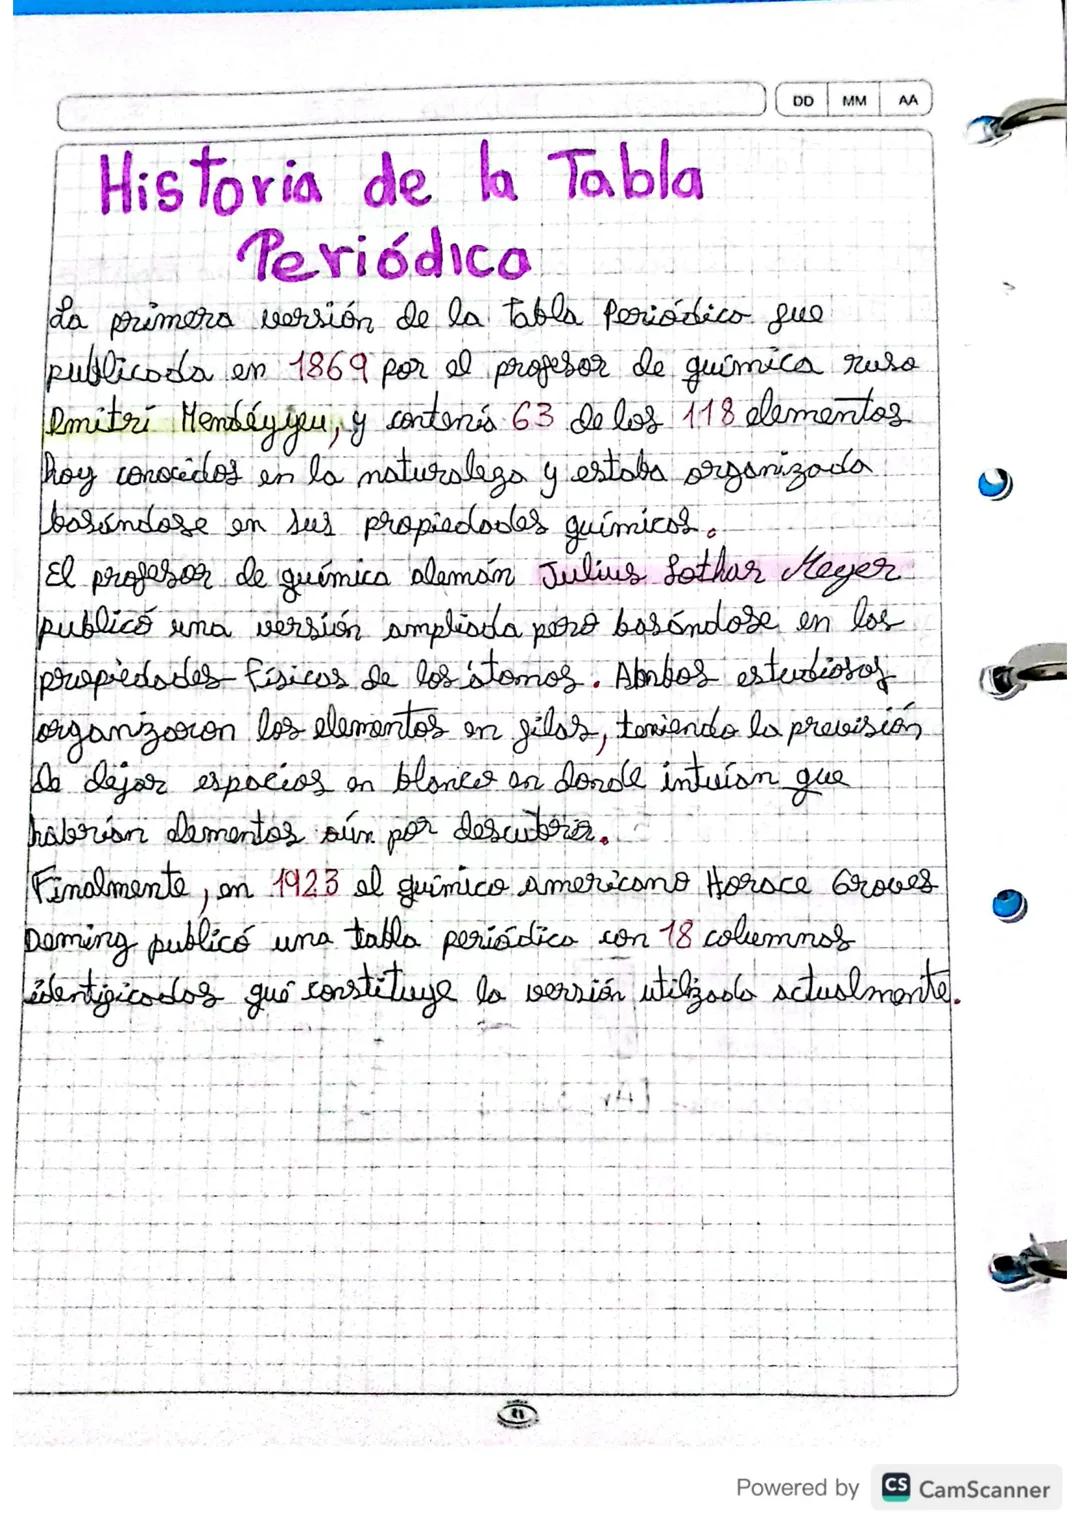 DD MM AA
Historia de la Tabla
Periódica
La primera versión de la Tabla Periódica fue
publicada en 1869 por el profesor de química ruso
Dmitri Mendéyyeu, y contenía 63 de los 118 elementos
hoy conocidos en la naturaleza y estaba organizada
basándose en sus propiedades químicas.
El profesor de química alemán Julius Lothar Meyer
publicó una versión ampliada pero basándose en los
propiedades físicas de los átomos. Ambos estudiosos
organizaron los elementos en filas, teniendo la previsión
de dejar espacios en blanco en donde intuían que
habrían elementos aún por descubrir.
Finalmente, en 1923 el químico americano Horace Groves
Deming publicó una tabla periódica con 18 columnas
identificadas qué constituye la versión utilizada actualmente.
Powered by CS CamScanner